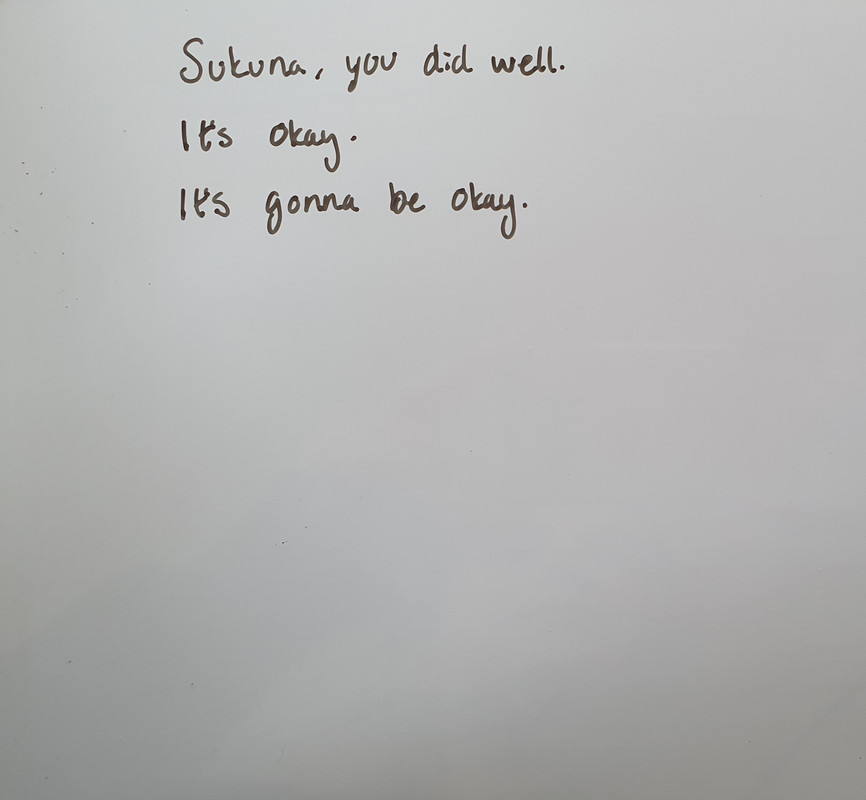 Sukuna, you did well.
It's okay.
It's gonna be okay.